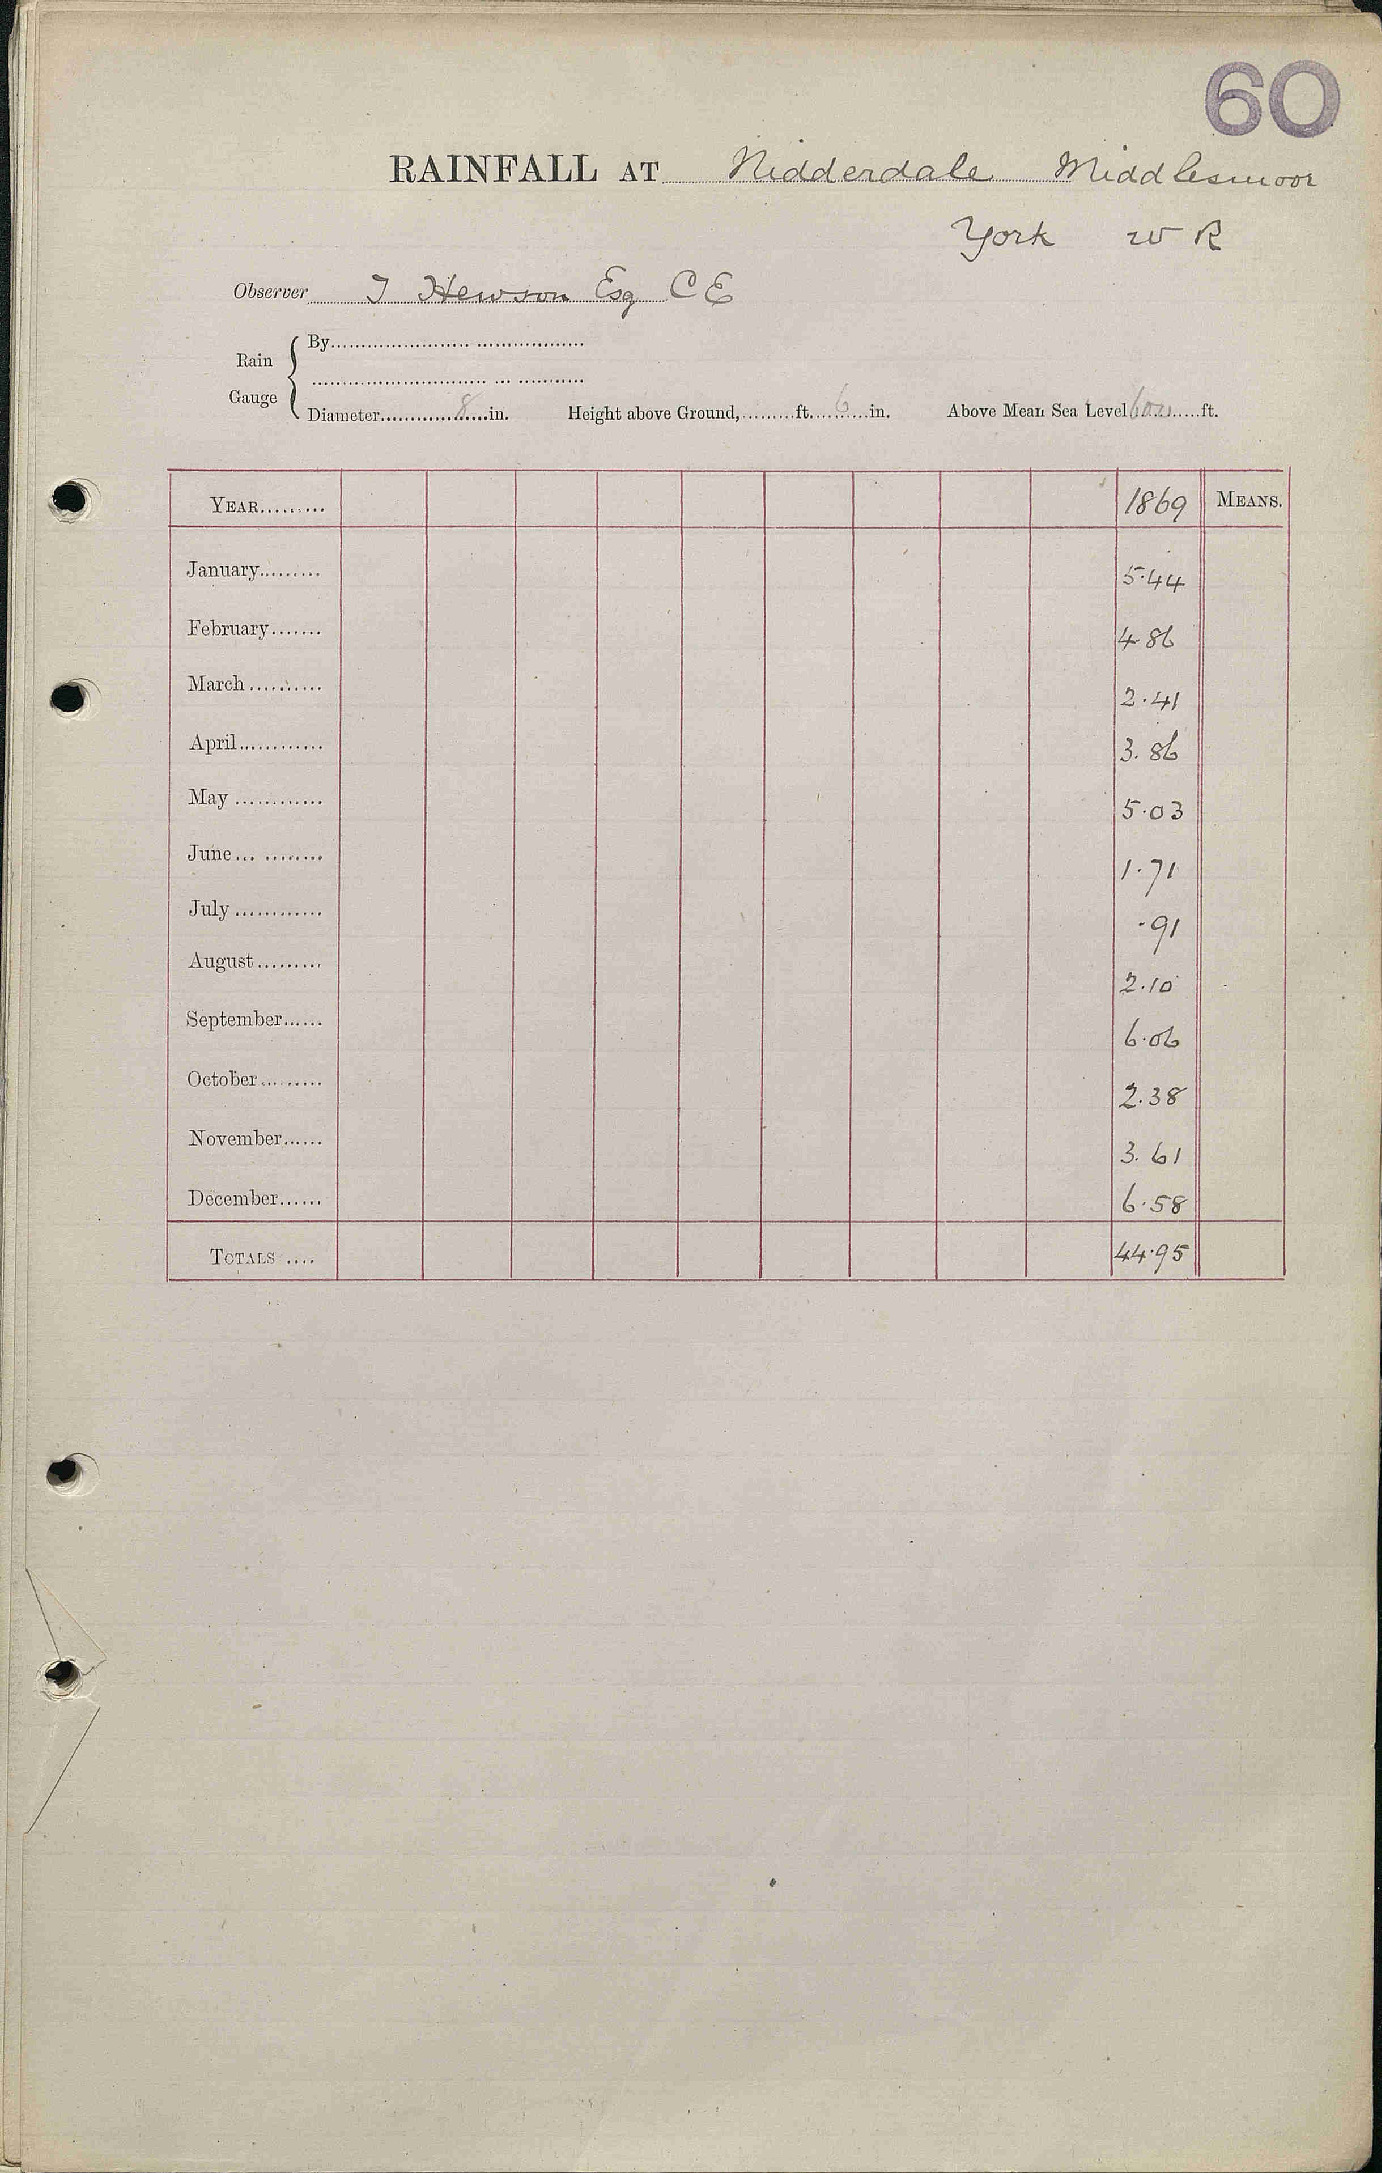 60
RAINFALL AT Nidderdale Middlesmoor
York W R
Observer T Hewson Esq C E
Rain Gauge
By
Diameter 8 in. Height above Ground, ft. 6 in. Above Mean Sea Level 600 ft.
YEAR 1869 MEANS.
January 5.44
February 4 86
March 2.41
April 3.86
May 5.03
June 1.71
July .91
August 2.10
September 6.06
October 2.38
November 3.61
December 6.58
TOTALS 44.95